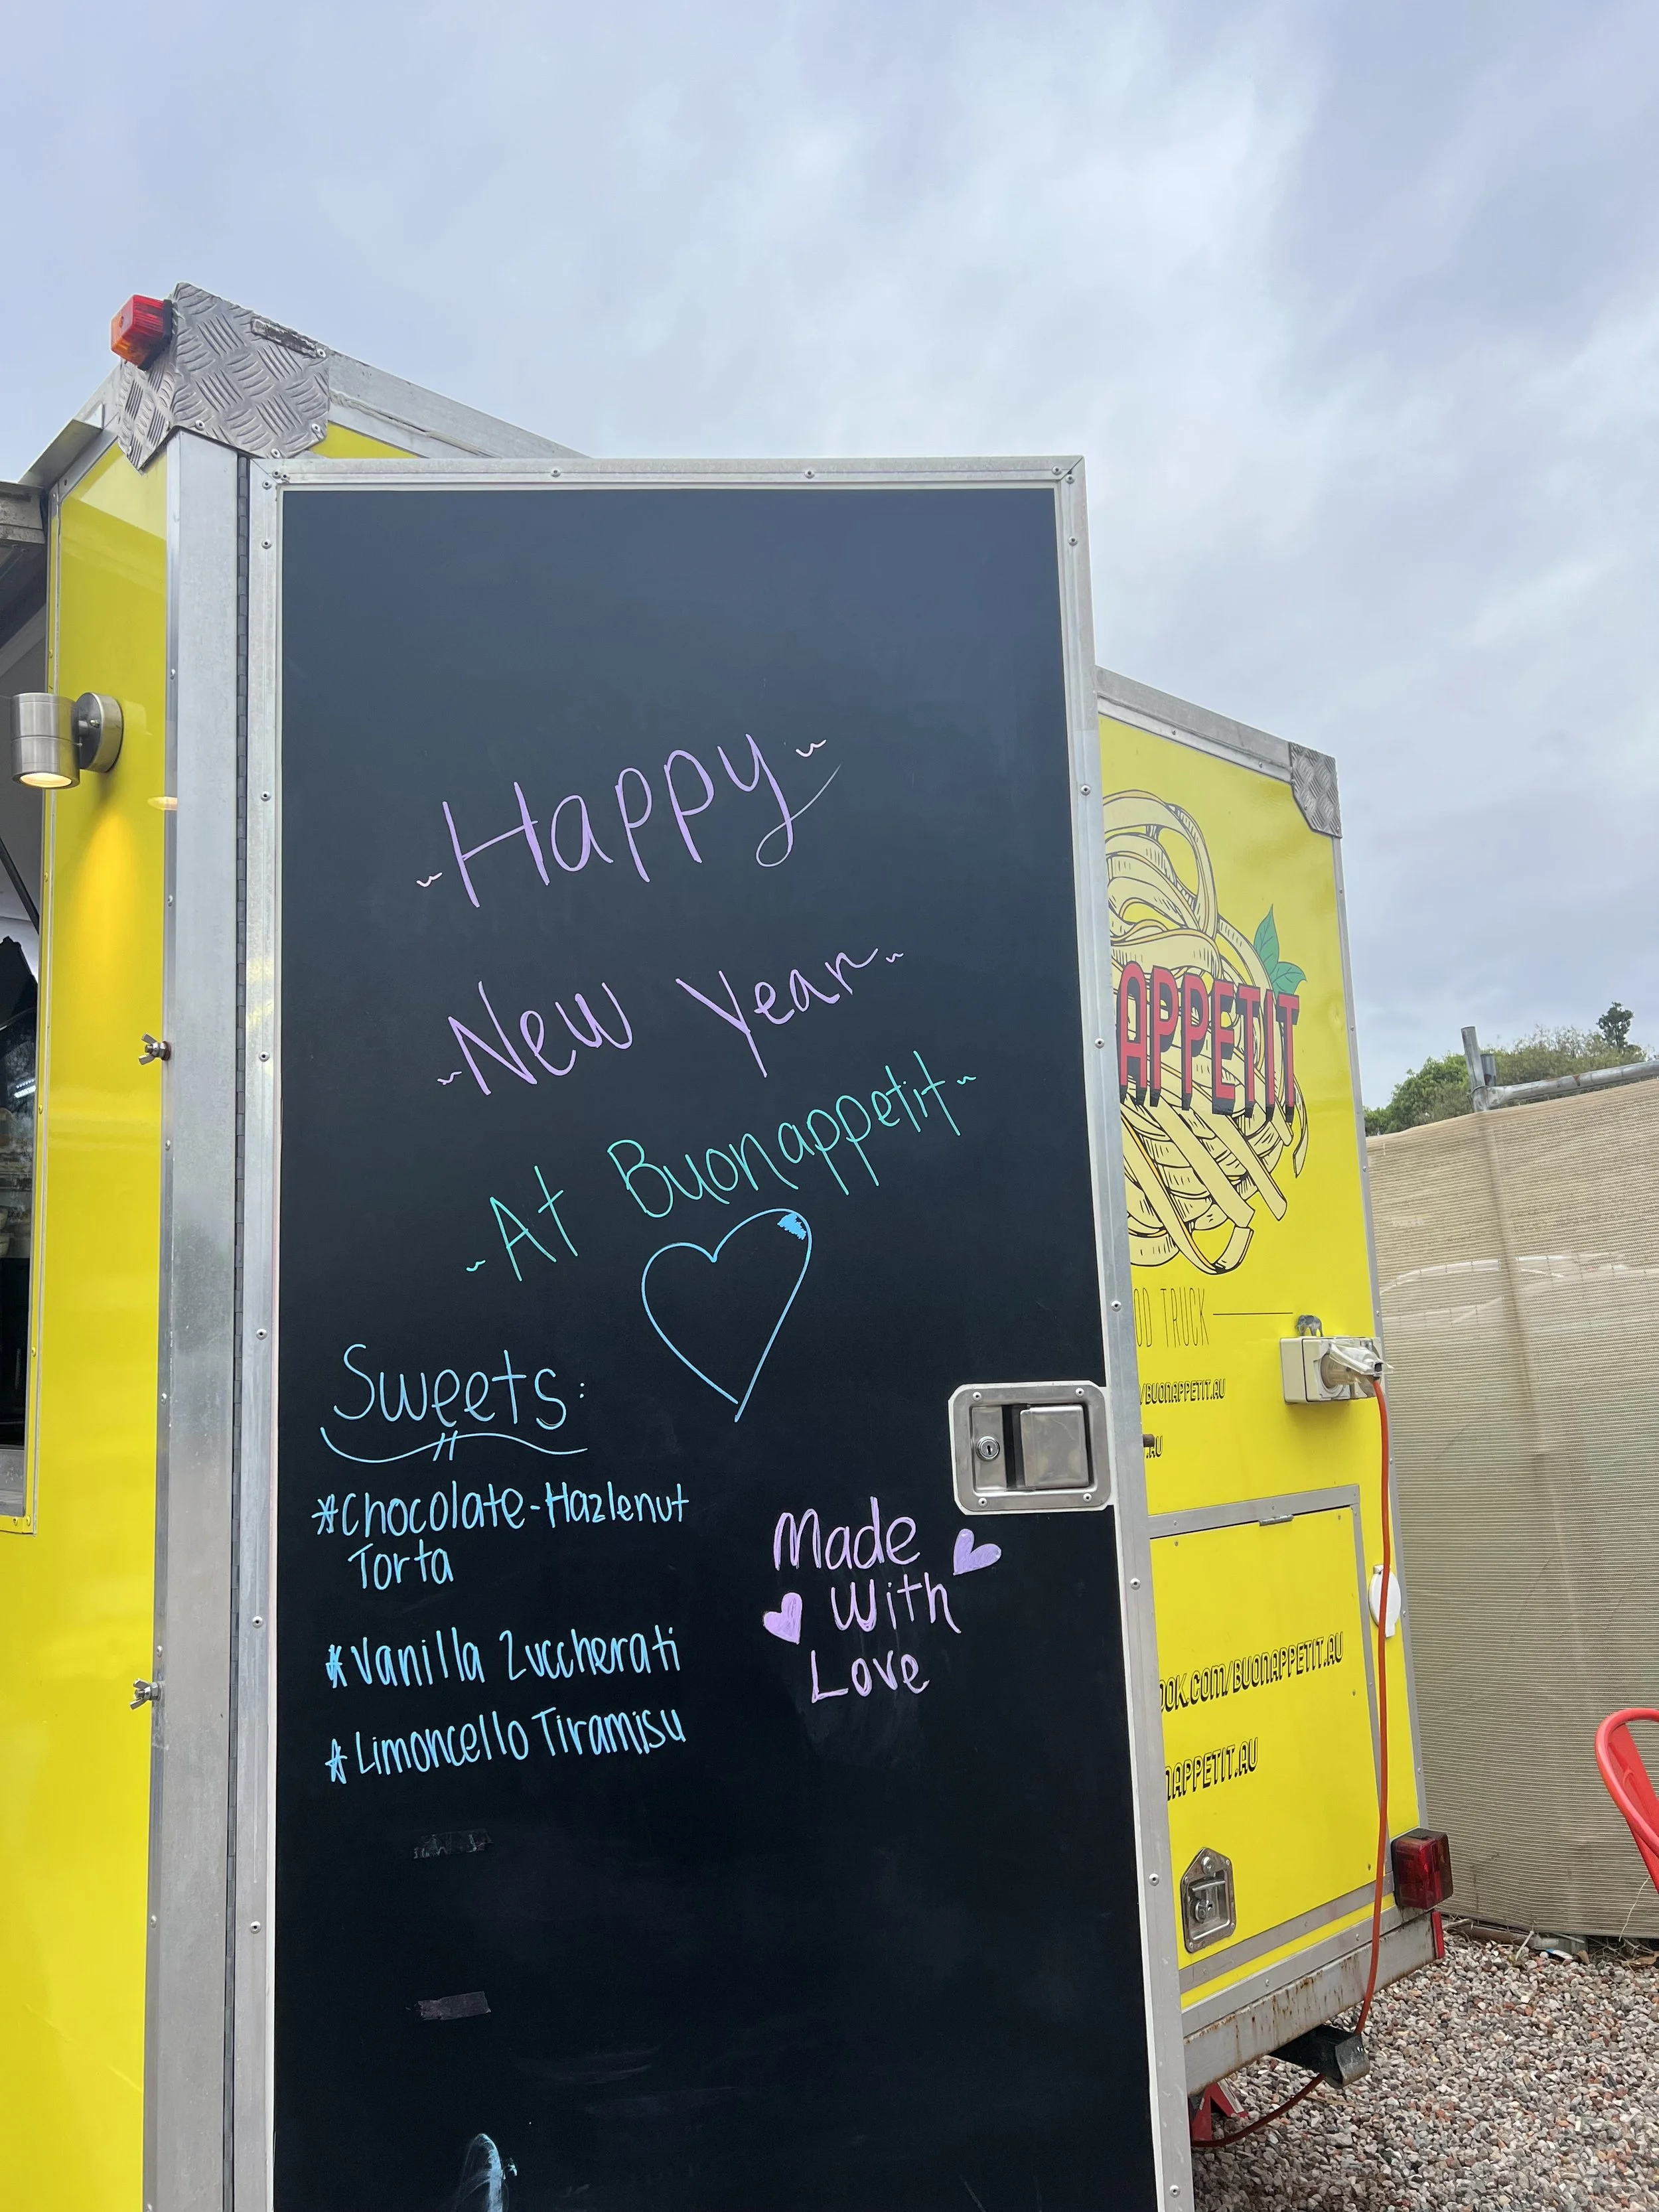 ~Happy~
~New Year~
~At Buonappetit~
Sweets:
*Chocolate-Hazlenut
Torta
*Vanilla Zuccherati
*Limoncello Tiramisu
Made
With
Love
APPETIT
OD TRUCK
/BUONAPPETIT.AU
.AU
OOK.COM/BUONAPPETIT.AU
NAPPETIT.AU